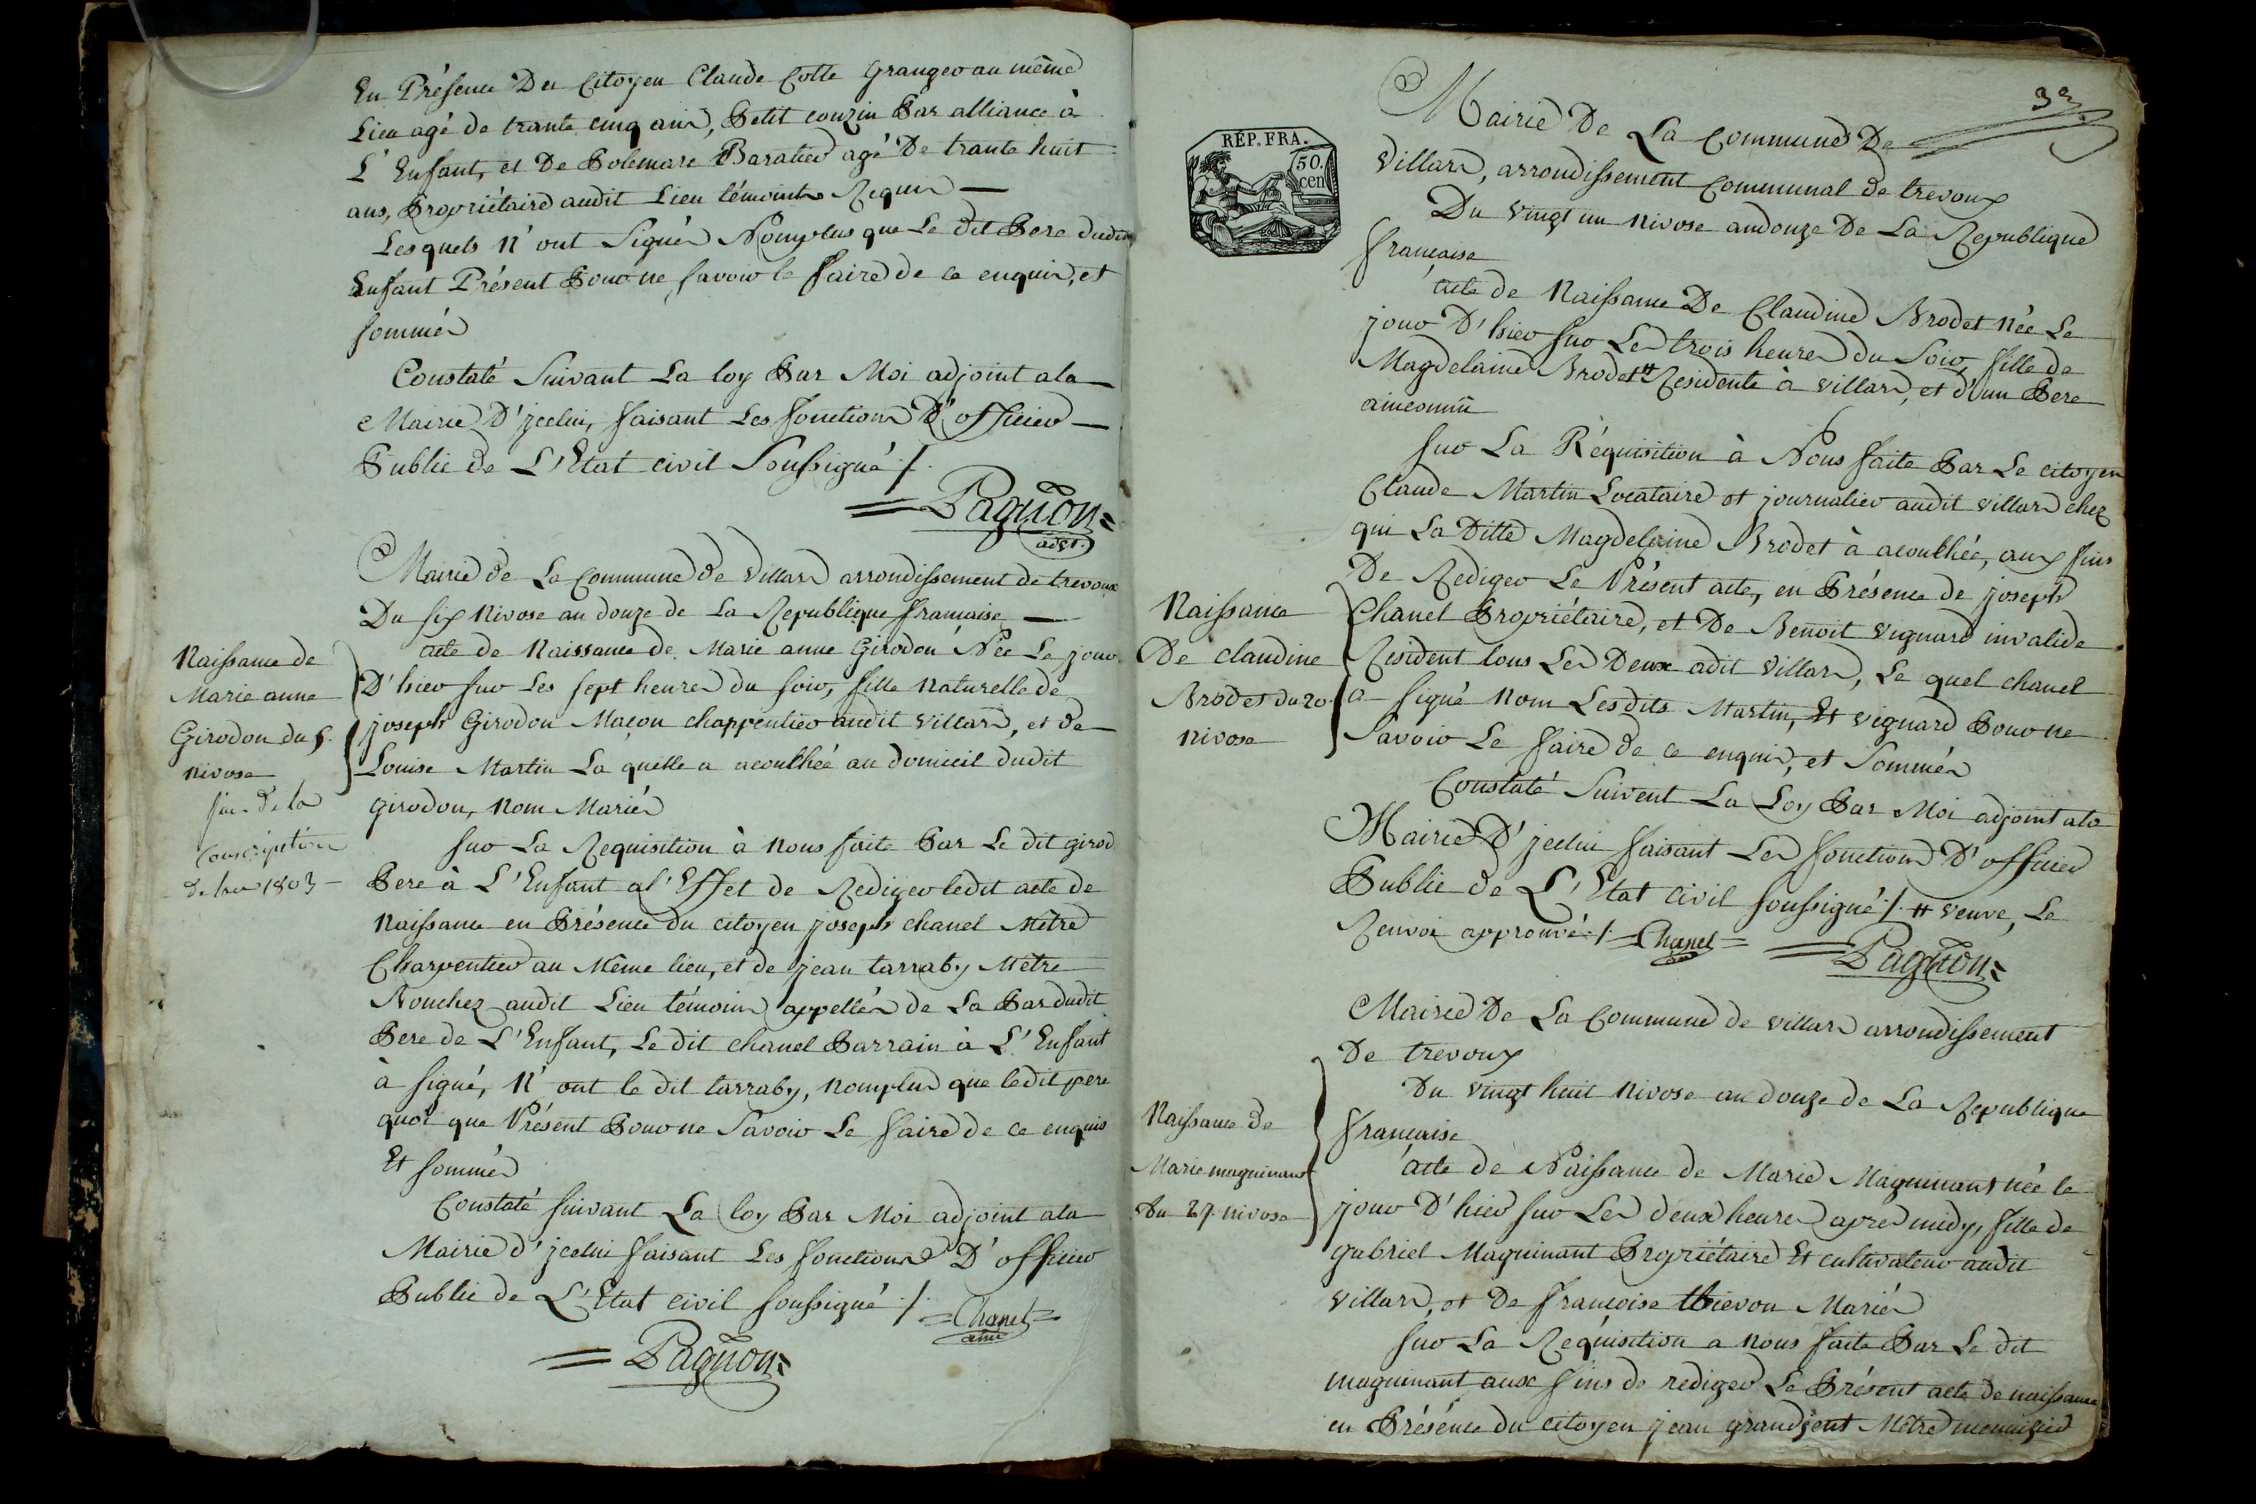 En Présence Du Citoyen Claude Cotte Granger au même
Lieu agé de trante cinq ans, Petit couzin Par alliance à
L'Enfant, et De Polemare Baratier agé De trante huit
ans, Propriétaire audit Lieu témoins Requis
Lesquels N'ont Signés Nomplus que Le dit Pere dudit
Enfant Présent Pour ne savoir le faire de ce enquis, et
sommés
Constaté Suivant La loy Par Moi adjoint ala
Mairie D'jcelui, faisant Les fonctions D'officier
Public de L'Etat civil Soussigné ./.
Pagnon
adjt.
Mairie de La Commune de Villars arrondissement de trevoux
Du six Nivose an douze de La Republique francaise
Naissance de
Marie anne
Girodon du 5.
nivose
fin de la
Conscription
de l'an 1803
acte de Naissance de Marie anne Girodon Née Le jour
D'hier sur Les sept heures du soir, fille Naturelle de
joseph Girodon Maçon charpentier audit Villars, et de
Louise Martin La quelle a acouchée au domicil dudit
girodon, nom Mariés
sur La Requisition à nous faite Par Le dit girod
Pere à L'Enfant al'Effet de Rediger ledit acte de
Naissance en Présence du citoyen joseph chanel Mêtre
Charpentier au Même lieu, et de jean tarraby Mêtre
Bouchez audit Lieu témoins appellés de La Par dudit
Pere de L'Enfant, Le dit chanel Parrain à L'Enfant
à signé, N'ont le dit tarraby, nomplus que ledit pere
quoi que Présent Pour ne Savoir Le faire de ce enquis
Et sommés
Constaté suivant La loy Par Moi adjoint ala
Mairie d'jcelui faisant Les fonctions D'officier
Public de L'Etat civil soussigné ./. Chanel
ainé
Pagnon
RÉP. FRA.
50.
cen
Mairie De La Commune De
Villars, arrondissement Communal de trevoux
Du vingt un nivose an douze De La Republique
francaise
Naissance
De claudine
Brodet du 20.
nivose
acte de Naissance De Claudine Brodet Née Le
jour D'hier sur Les trois heures du Soir, fille de
Magdelaine Brodet # Residente à villars, et d'un Pere
aincomu
sur La Réquisition à Nous faite Par Le citoyen
Claude Martin Locataire et journalier audit villars chez
qui La Ditte Magdelaine Brodet à acouchée, aux fins
De Rediger Le Présent acte, en Présence de joseph
Chanel Propriétaire, et De Benoit vignard invalide
Resident tous Les Deux adit Villars, Le quel chanel
a signé Nom Lesdits Martin, Et vignard Pour ne
Savoir Le faire de ce enquis, et Sommés
Constaté Suivent La Loy Par Moi adjoint ala
Mairie D'jcelui faisant Les fonctions D'officier
Public de L'Etat civil soussigné ./. # veuve, Le
Renvoi approuvé ./. Chanel
Pagnon
Mairie De La Commune de villars arrondissement
De trevoux
Du vingt huit nivose an douze de La Republique
francaise
Naissance de
Marie maguinant
Du 27. nivose
acte de Naissance de Marie Maguinant née le
jour D'hier sur Les deux heures apres midy, fille de
gabriel Maguinant Propriétaire Et cultivateur audit
villars, et De francoise thievon Mariés
sur La Requisition a nous faite Par Le dit
maguinant aux fins de rediger Le Présent acte de naissance
en Présence du citoyen jean grandjent Mêtre menuizier